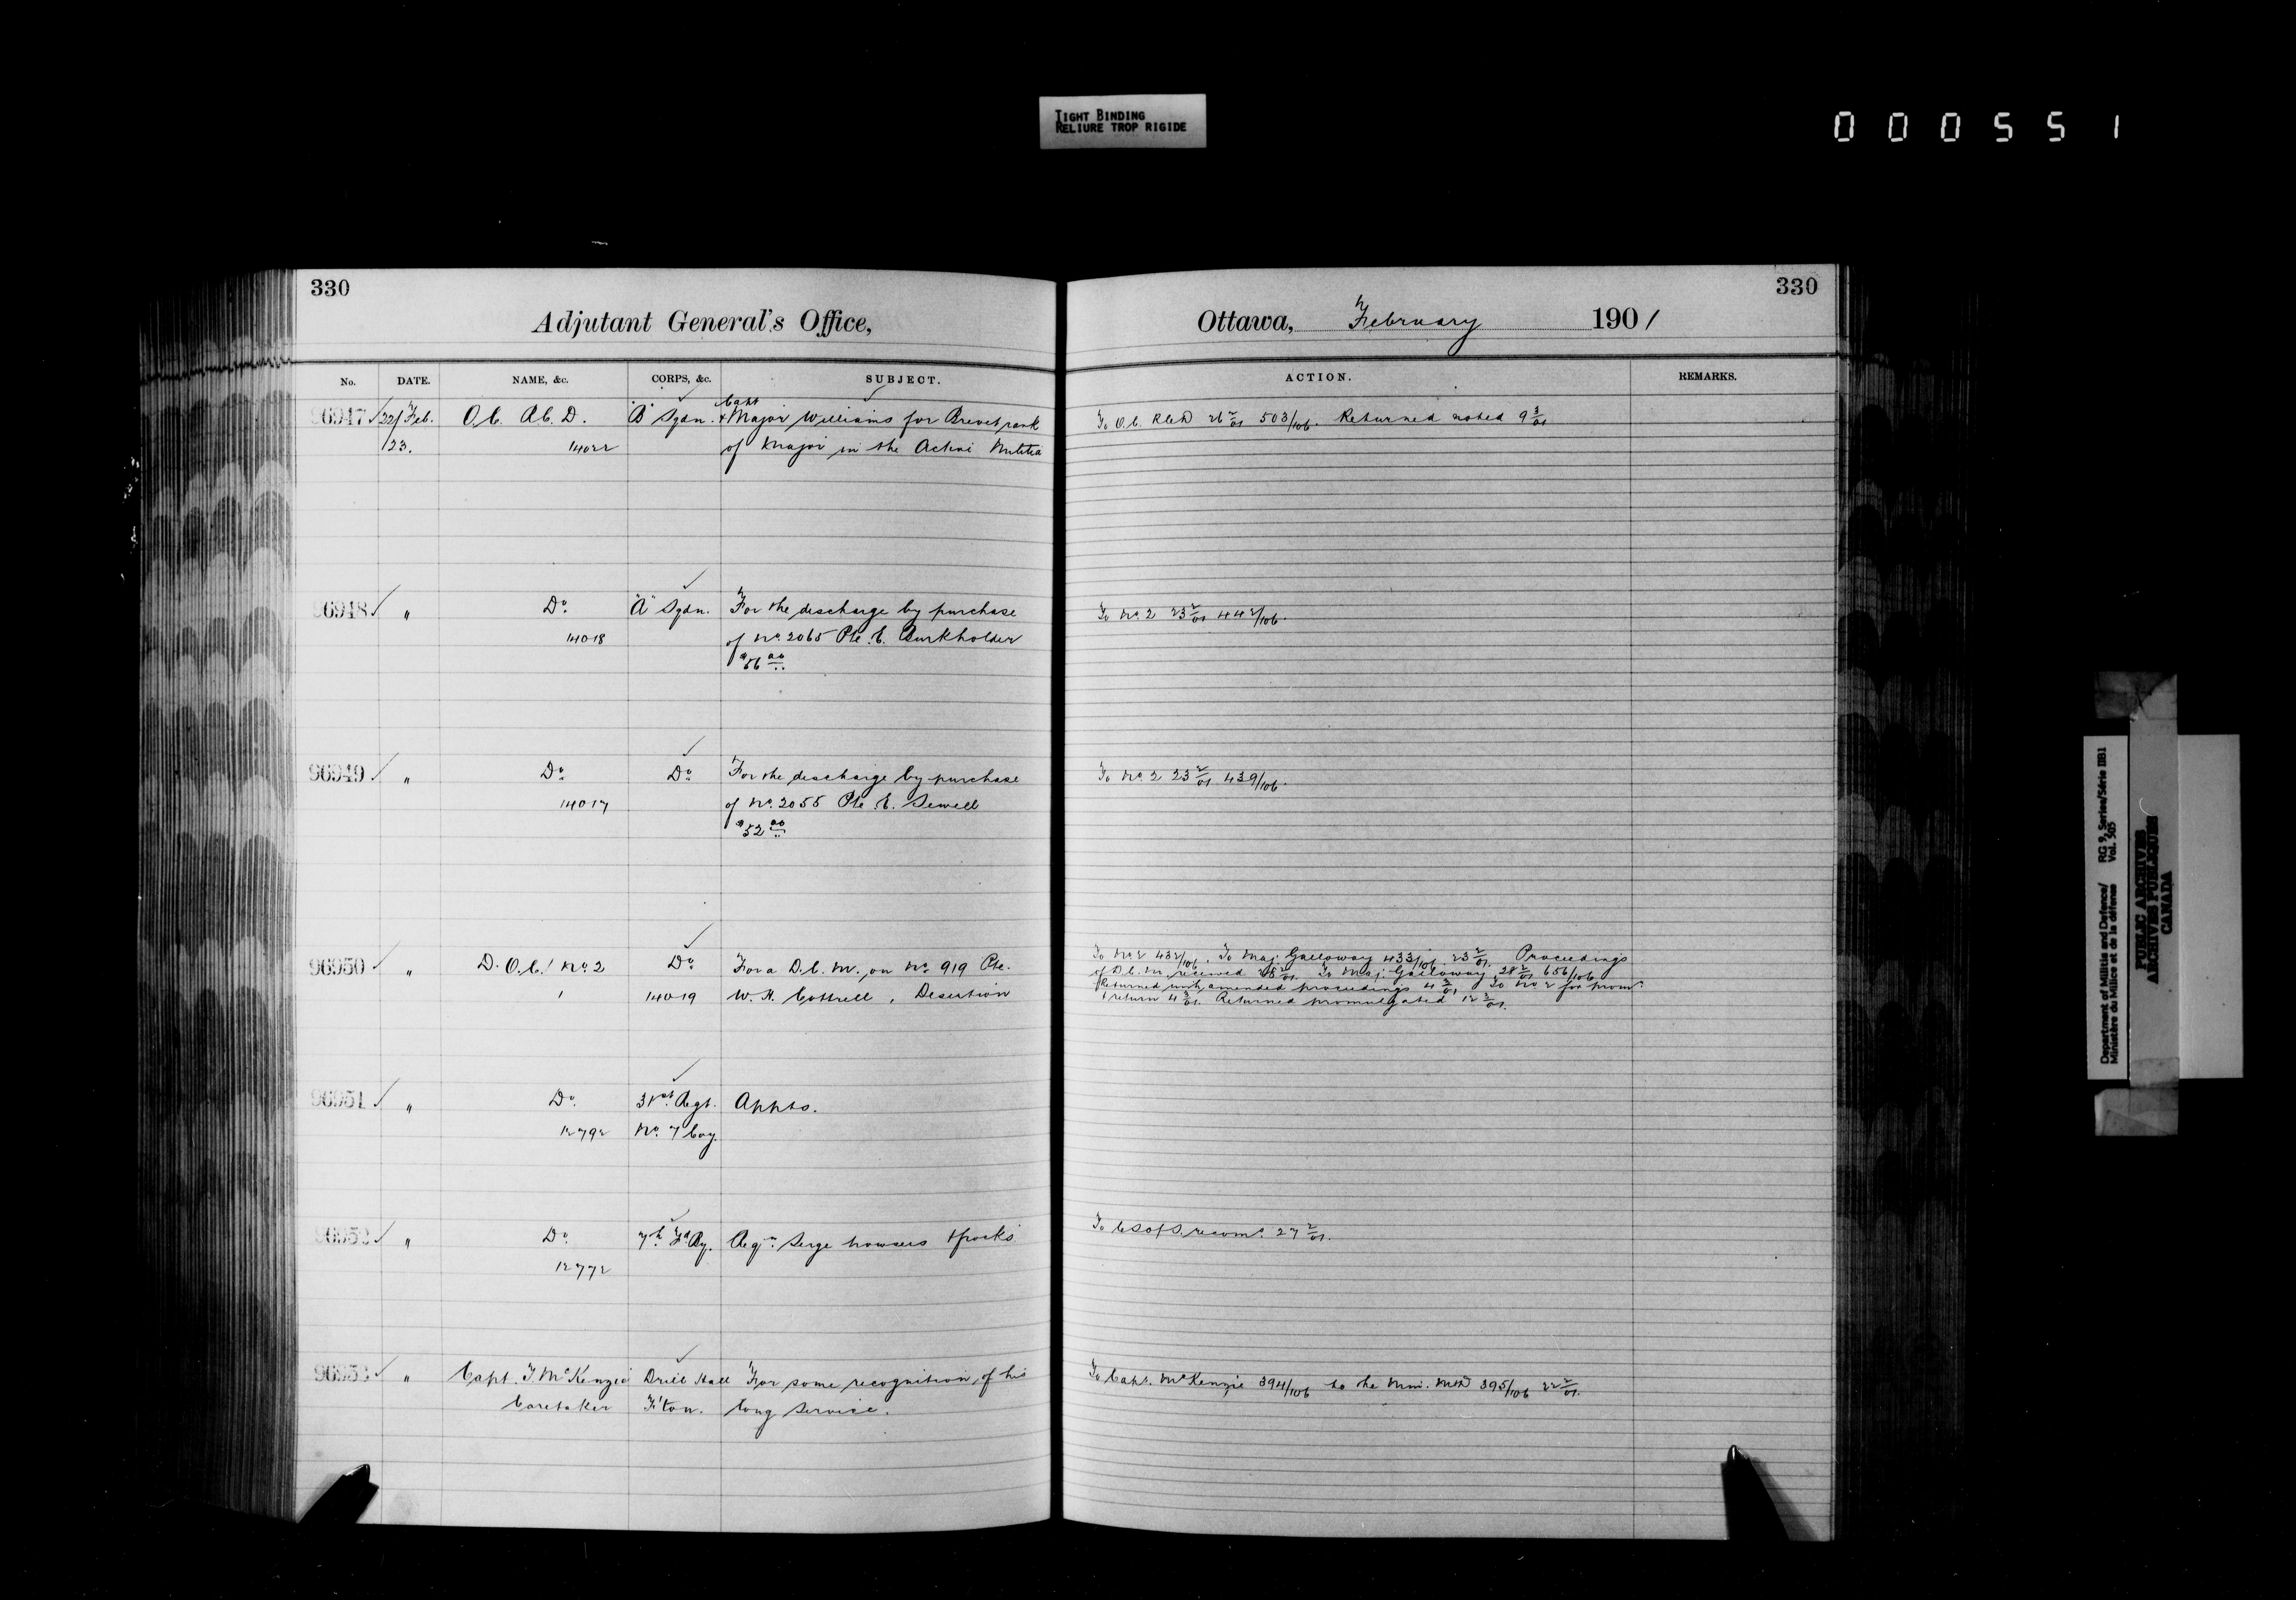 TIGHT BINDING
RELIURE TROP RIGIDE
000551
330
Adjutant General's Office,
No. DATE. NAME, &c. CORPS, &c. SUBJECT.
96947 22/Feb. O.C. R.C.D. "B" Sqdn. Capt & Major Williams for Brevet rank
/23. 14022 of Major in the Active Militia
96948 " Do. "A" Sqdn. For the discharge by purchase
14018 of No. 2065 Pte. E. Burkholder
$56.00
96949 " Do. Do. For the discharge by purchase
14017 of No. 2055 Pte. E. Sewell
$52.00
96950 " D.O.C. No. 2 Do. For a D.C.M. on No. 919 Pte.
14019 W. H. Cottrell. Desertion
96951 " Do. 31st Regt. Appts.
12792 No. 7 Coy.
96952 " Do. 7th Fd By. Reqn. Serge trowsers & frocks
12772
96953 " Capt. T. McKenzie Drill Hall For some recognition of his
Caretaker F'ton. long service.
330
Ottawa, February 1901
ACTION. REMARKS.
To O.C. RCD 26 2/01 503/106. Returned noted 9 3/01
To No. 2 23 2/01 442/106.
To No. 2 23 2/01 439/106.
To No. 2 432/106. To Maj. Galloway 433/106 23 2/01. Proceedings
of D.C.M. received 28 2/01. To Maj. Galloway 28 2/01 656/106
Returned with amended proceedings 4 3/01 To No 2 for prom.
& return 4 3/01. Returned promulgated 12 3/01.
To CSofS. recomd. 27 2/01.
To Capt. McKenzie 394/106 to the Min. M&D 395/106 22 2/01.
Department of Militia and Defence/ RG 9, Series/Série IIB1
Ministère du Milice et de la défense Vol. 505
PUBLIC ARCHIVES
ARCHIVES PUBLIQUES
CANADA